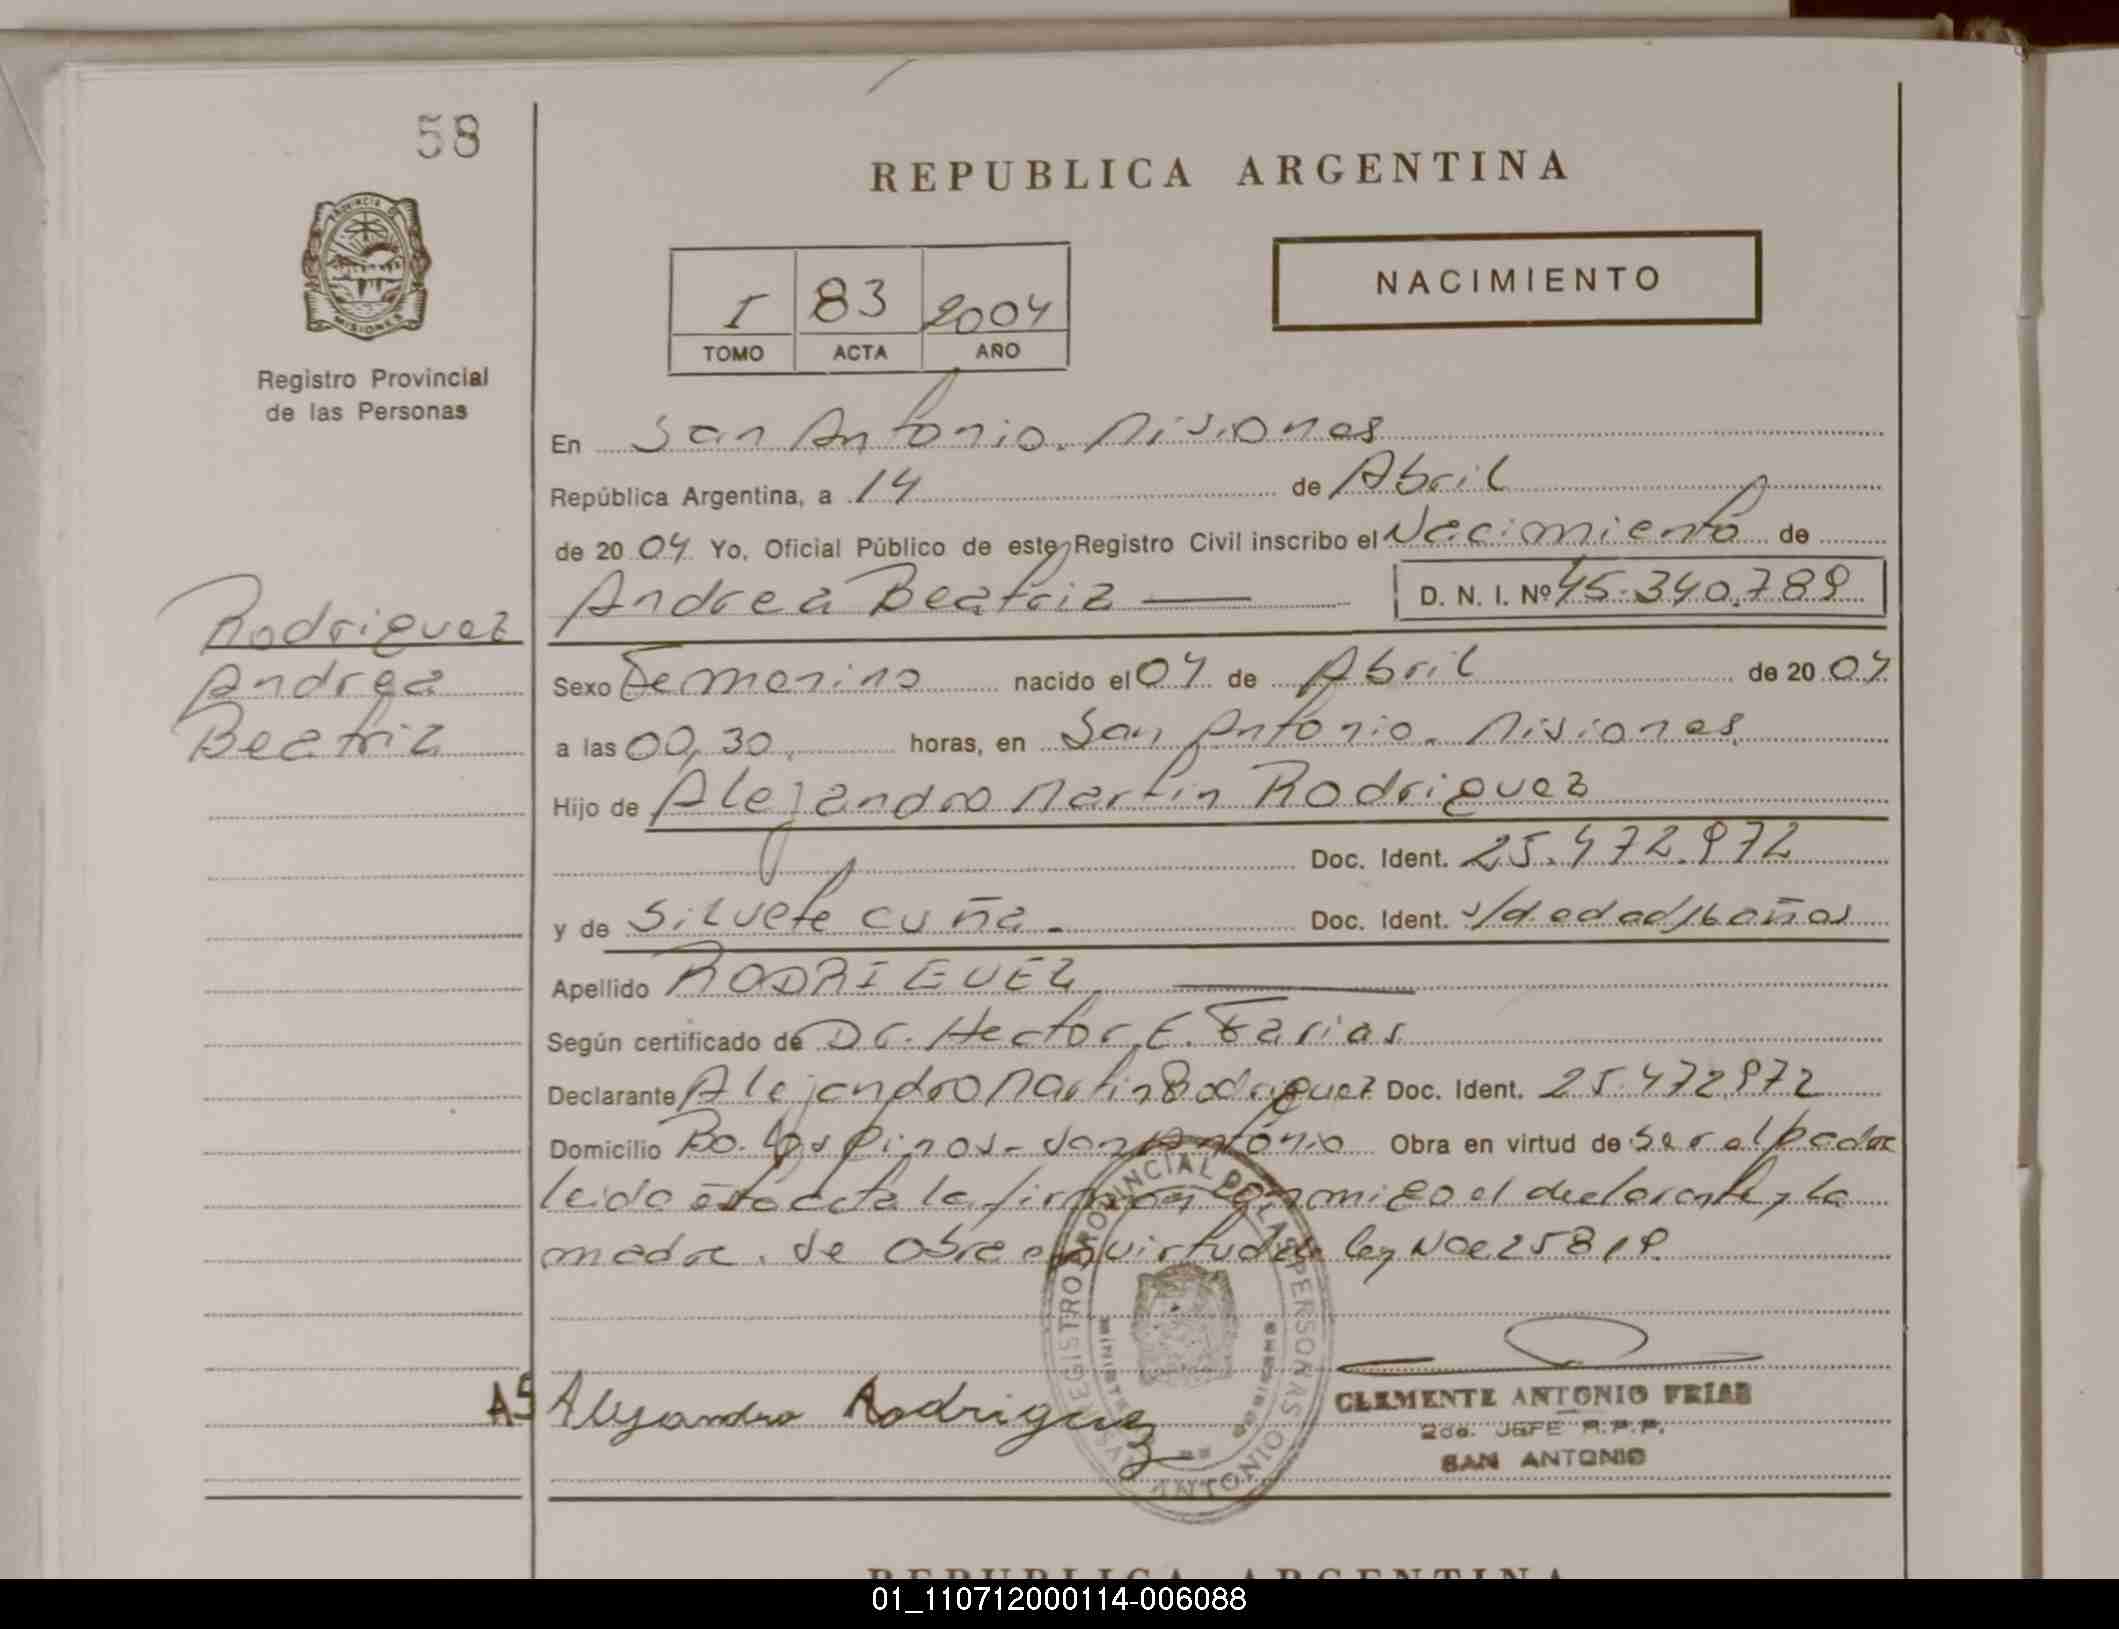 58
REPUBLICA ARGENTINA
PROVINCIA DE
MISIONES
I 83 2004
TOMO ACTA AÑO
NACIMIENTO
Registro Provincial
de las Personas
En San Antonio. Misiones
República Argentina, a 14 de Abril
de 20 04 Yo, Oficial Público de este Registro Civil inscribo el Nacimiento de
Andrea Beatriz D. N. I. Nº 45.340.789
Rodriguez
Andrea
Beatriz
Sexo Femenino nacido el 04 de Abril de 20 04
a las 00,30 horas, en San Antonio. Misiones
Hijo de Alejandro Martin Rodriguez
Doc. Ident. 25.472.972
y de Silvete cuña. Doc. Ident. s/d edad 16 años
Apellido RODRIGUEZ
Según certificado de Dr. Hector E. Farias
Declarante Alejandro Martin Rodriguez Doc. Ident. 25.472.972
Domicilio Bo. Los Pinos - San Antonio Obra en virtud de ser el padre
leida esta acta la firman conmigo el declarante y la
madre. se obra en virtud de ley Noe 25819
REGISTRO PROVINCIAL DE LAS PERSONAS
MISIONES
SAN ANTONIO
AS Alejandro Rodriguez
CLEMENTE ANTONIO FRIAS
2do. JEFE R.P.P.
SAN ANTONIO
REPUBLICA ARGENTINA
01_110712000114-006088